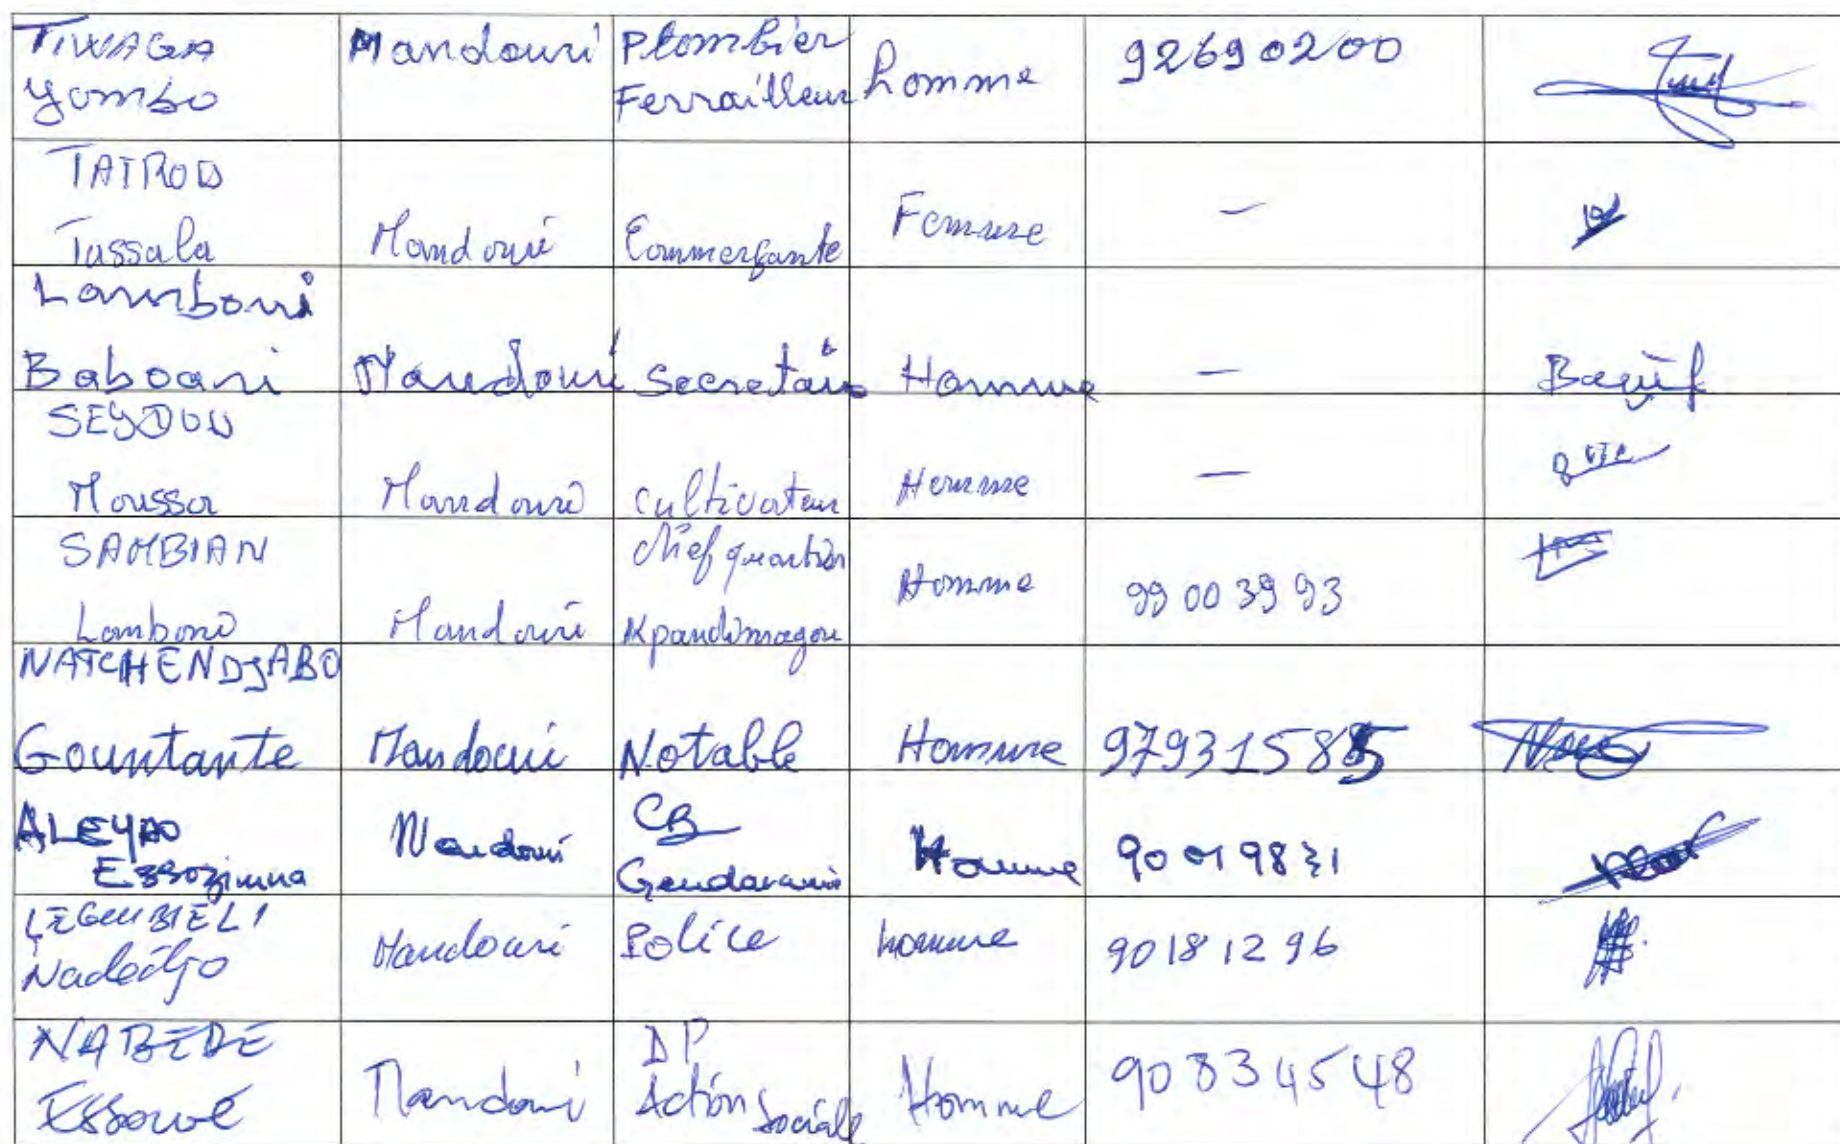 TIWAGA Yombo Mandouri Plombier Ferrailleur homme 92690200
TATROU Tassala Mandouri Commerçante Femme —
Lamboni Baboani Mandouri Secretair Homme —
SEYDOU Moussa Mandouri Cultivateur Homme —
SAMBIAN Lamboni Mandouri chef quartier Kpandimagou Homme 99 00 39 93
NATCHENDJABO Gountante Mandouri Notable Homme 97931585
ALEYAO Essozimna Mandouri CB Gendarmerie Homme 90 01 98 31
LEGUEBIELI Nadédjo Mandouri Police homme 90 18 12 96
NABEDE Essowè Mandouri DP Action Sociale Homme 90834548